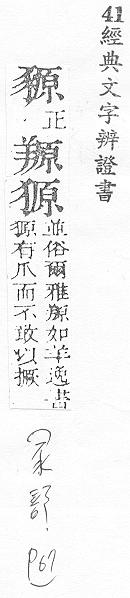 41 經典文字辨證書
豲 正
羱 獂
並俗爾雅羱如羊逸書
豲有爪而不敢以撅
豕部.
P67